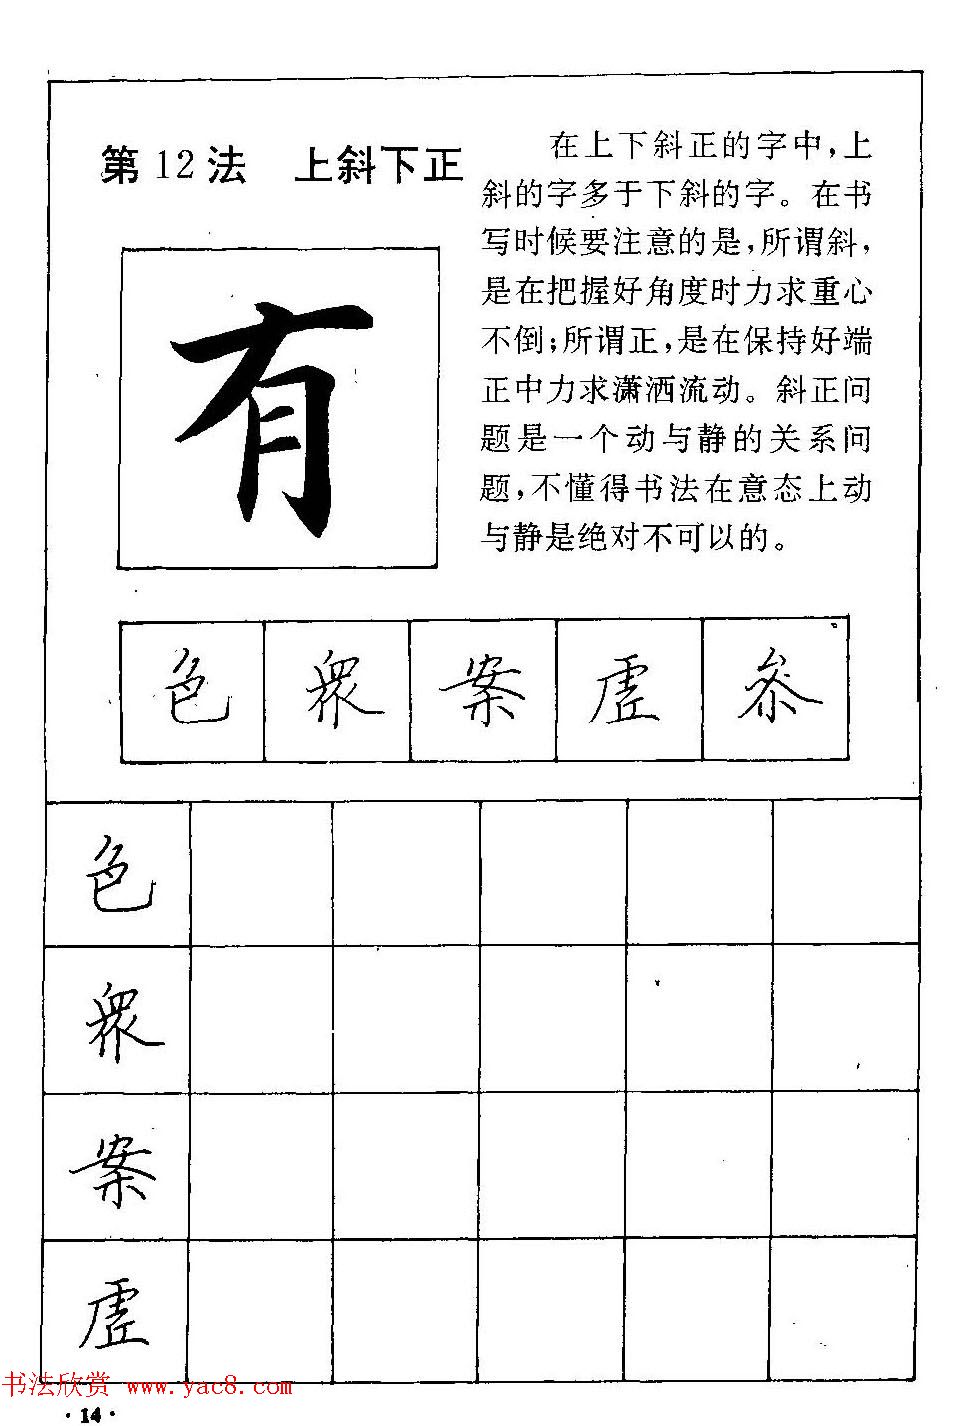 第12法 上斜下正
在上下斜正的字中，上
斜的字多于下斜的字。在书
写时候要注意的是，所谓斜，
是在把握好角度时力求重心
不倒；所谓正，是在保持好端
正中力求潇洒流动。斜正问
题是一个动与静的关系问
题，不懂得书法在意态上动
与静是绝对不可以的。
有
色 眾 案 虚 参
色
眾
案
虚
书法欣赏 www.yac8.com
·14·